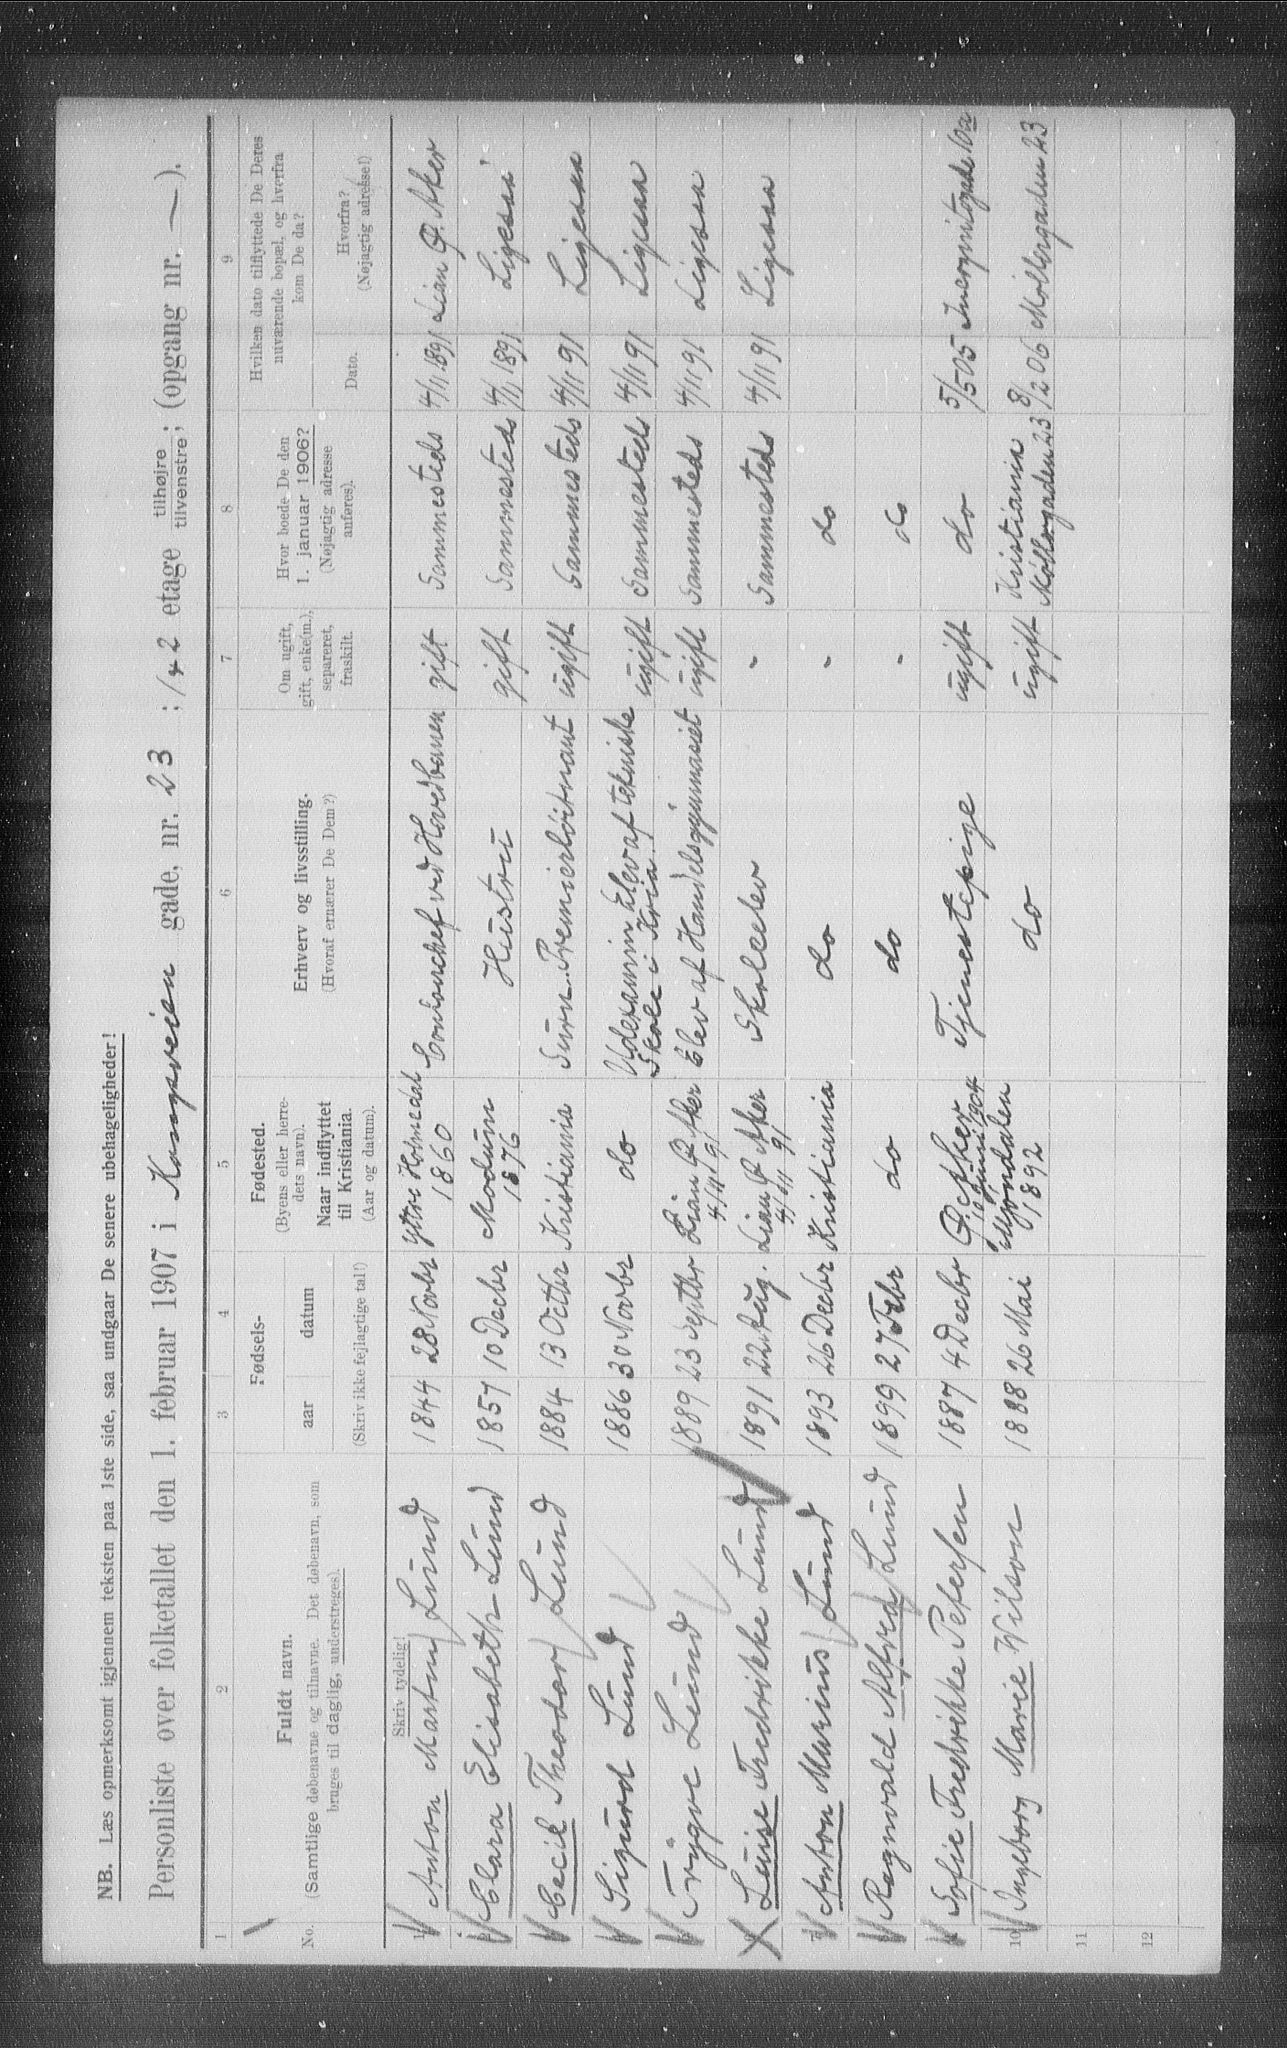 NB. Læs opmerksomt igjennem teksten paa 1ste side, saa undgaar De senere ubehageligheder!
Personliste over folketallet den 1. februar 1907 i Kongsveien gade, nr. 23 ; 1 & 2 etage tilhøjre tilvenstre; (opgang nr. — ).
1 2 3 4 5 6 7 8 9
No.
Fuldt navn.
(Samtlige døbenavne og tilnavne. Det døbenavn, som
bruges til daglig, understreges).
Skriv tydelig!
Fødsels-
aar datum
(Skriv ikke fejlagtige tal!)
Fødested.
(Byens eller herre-
dets navn).
Naar indflyttet
til Kristiania.
(Aar og datum).
Erhverv og livsstilling.
(Hvoraf ernærer De Dem?)
Om ugift,
gift, enke(m.),
separeret,
fraskilt.
Hvor boede De den
1. januar 1906?
(Nøjagtig adresse
anføres).
Hvilken dato tilflyttede De Deres
nuværende bopæl, og hvorfra
kom De da?
Dato.
Hvorfra?
(Nøjagtig adresse!)
Anton Martin Lund 1844 28 Novbr Yttre Holmedal 1860 Contorchef ved Hovedbanen gift Sammesteds 4/11 1891 Lian Ø. Aker
Clara Elisabeth Lund 1857 10 Decbr Modum 1876 Hustru gift Sammesteds 4/11 1891 Ligesaa
Cecil Theodor Lund 1884 13 Octbr Kristiania Premierløitnant ugift Sammesteds 4/11 91 Ligesaa
Sigurd Lund 1886 30 Novbr do Elev af tekniske Skole i Kria ugift Sammesteds 4/11 91 Ligesaa
Trygve Lund 1889 23 Septbr Lian Ø Aker 4/11 91 Elev af Handelsgymnasiet ugift Sammesteds 4/11 91 Ligesaa
Louise Fredrikke Lund 1891 22 Aug. Lian Ø Aker 4/11 91 Skoleelev - Sammesteds 4/11 91 Ligesaa
7 Anton Marius Lund 1893 26 Decbr Kristiania do - do
Ragnvald Alfred Lund 1899 27 Febr do do - do
Sofie Fredrikke Petersen 1887 4 Decbr Ø. Aker 1904 Tjenestepige ugift do 5/5 05 Incognitogade 10a
10 Ingeborg Marie Wilson 1888 26 Mai Mjøndalen 1892 do ugift Kristiania Møllergaden 23 8/2 06 Møllergaden 23
11
12